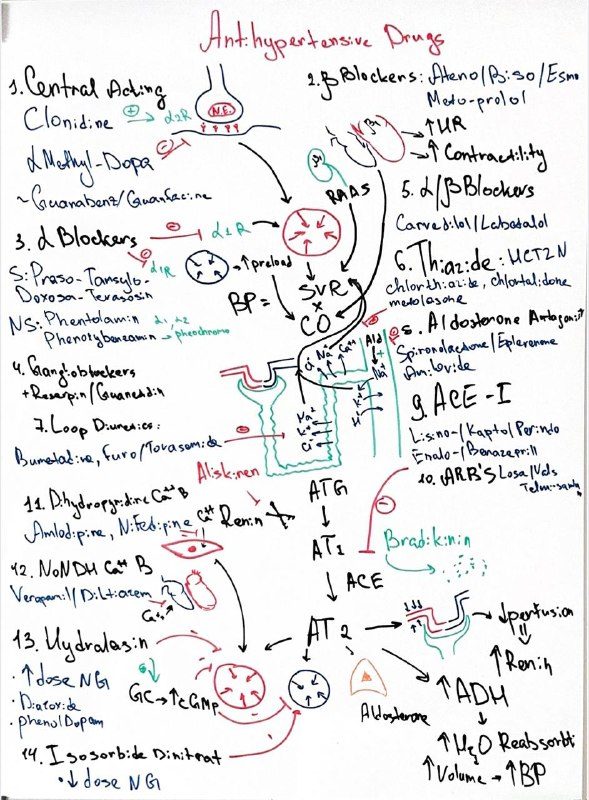 Antihypertensive Drugs
1. Central Acting
Clonidine ⊕ → α2R
αMethyl-Dopa
~ Guanabenz/Guanfacine
N.E.
2. β Blockers: Ateno/Biso/Esmo
Meto-prolol
β1
↑HR
↑ Contractility
β1
RAAS
3. α Blockers
α1R
α1R
↑preload
S: Praso-Tamsylo-
Doxosa-Terasosin
NS: Phentolamin α1, α2
Phenotybenzamin → pheochromo
BP = SVR
x
CO
5. α/β Blockers
Carvedilol/Labetalol
6. Thiazide: HCTZN
chlorthiazide, chlortalidone
metolasone
8. Aldosterone Antagonist
Spironolactone/Eplerenone
Amiloride
4. Ganglioblockers
+ Reserpin/Guanetidin
Cl⁻ Na⁺ Ca⁺⁺
Ald
+
Na⁺
K⁺
H⁺
Na⁺
K⁺
Cl⁻
7. Loop Diuretics:
Bumetadine, Furo/Torasomide
9. ACE-I
Lisino-/Kapto/Perindo
Enalo-/Benazepril
10. ARB'S Losa/Vals
Aliskiren
Renin
ATG
AT1
ACE
AT2
Bradikinin
11. Dihydropyridine Ca⁺⁺ B
Amlodipine, Nifedipine
Ca⁺⁺
12. NoNDH Ca⁺⁺ B
Verapamil/Diltiazem
Ca⁺⁺
↓perfusion
↑Renin
↑ADH
↑H2O Reabsorbt
↑Volume → ↑BP
Aldosterone
13. Hydralasin
· ↑dose NG
· Diazoxide
· phenolDopam
GC → ↑cGMP
14. Isosorbide Dinitrat
· ↓ dose NG